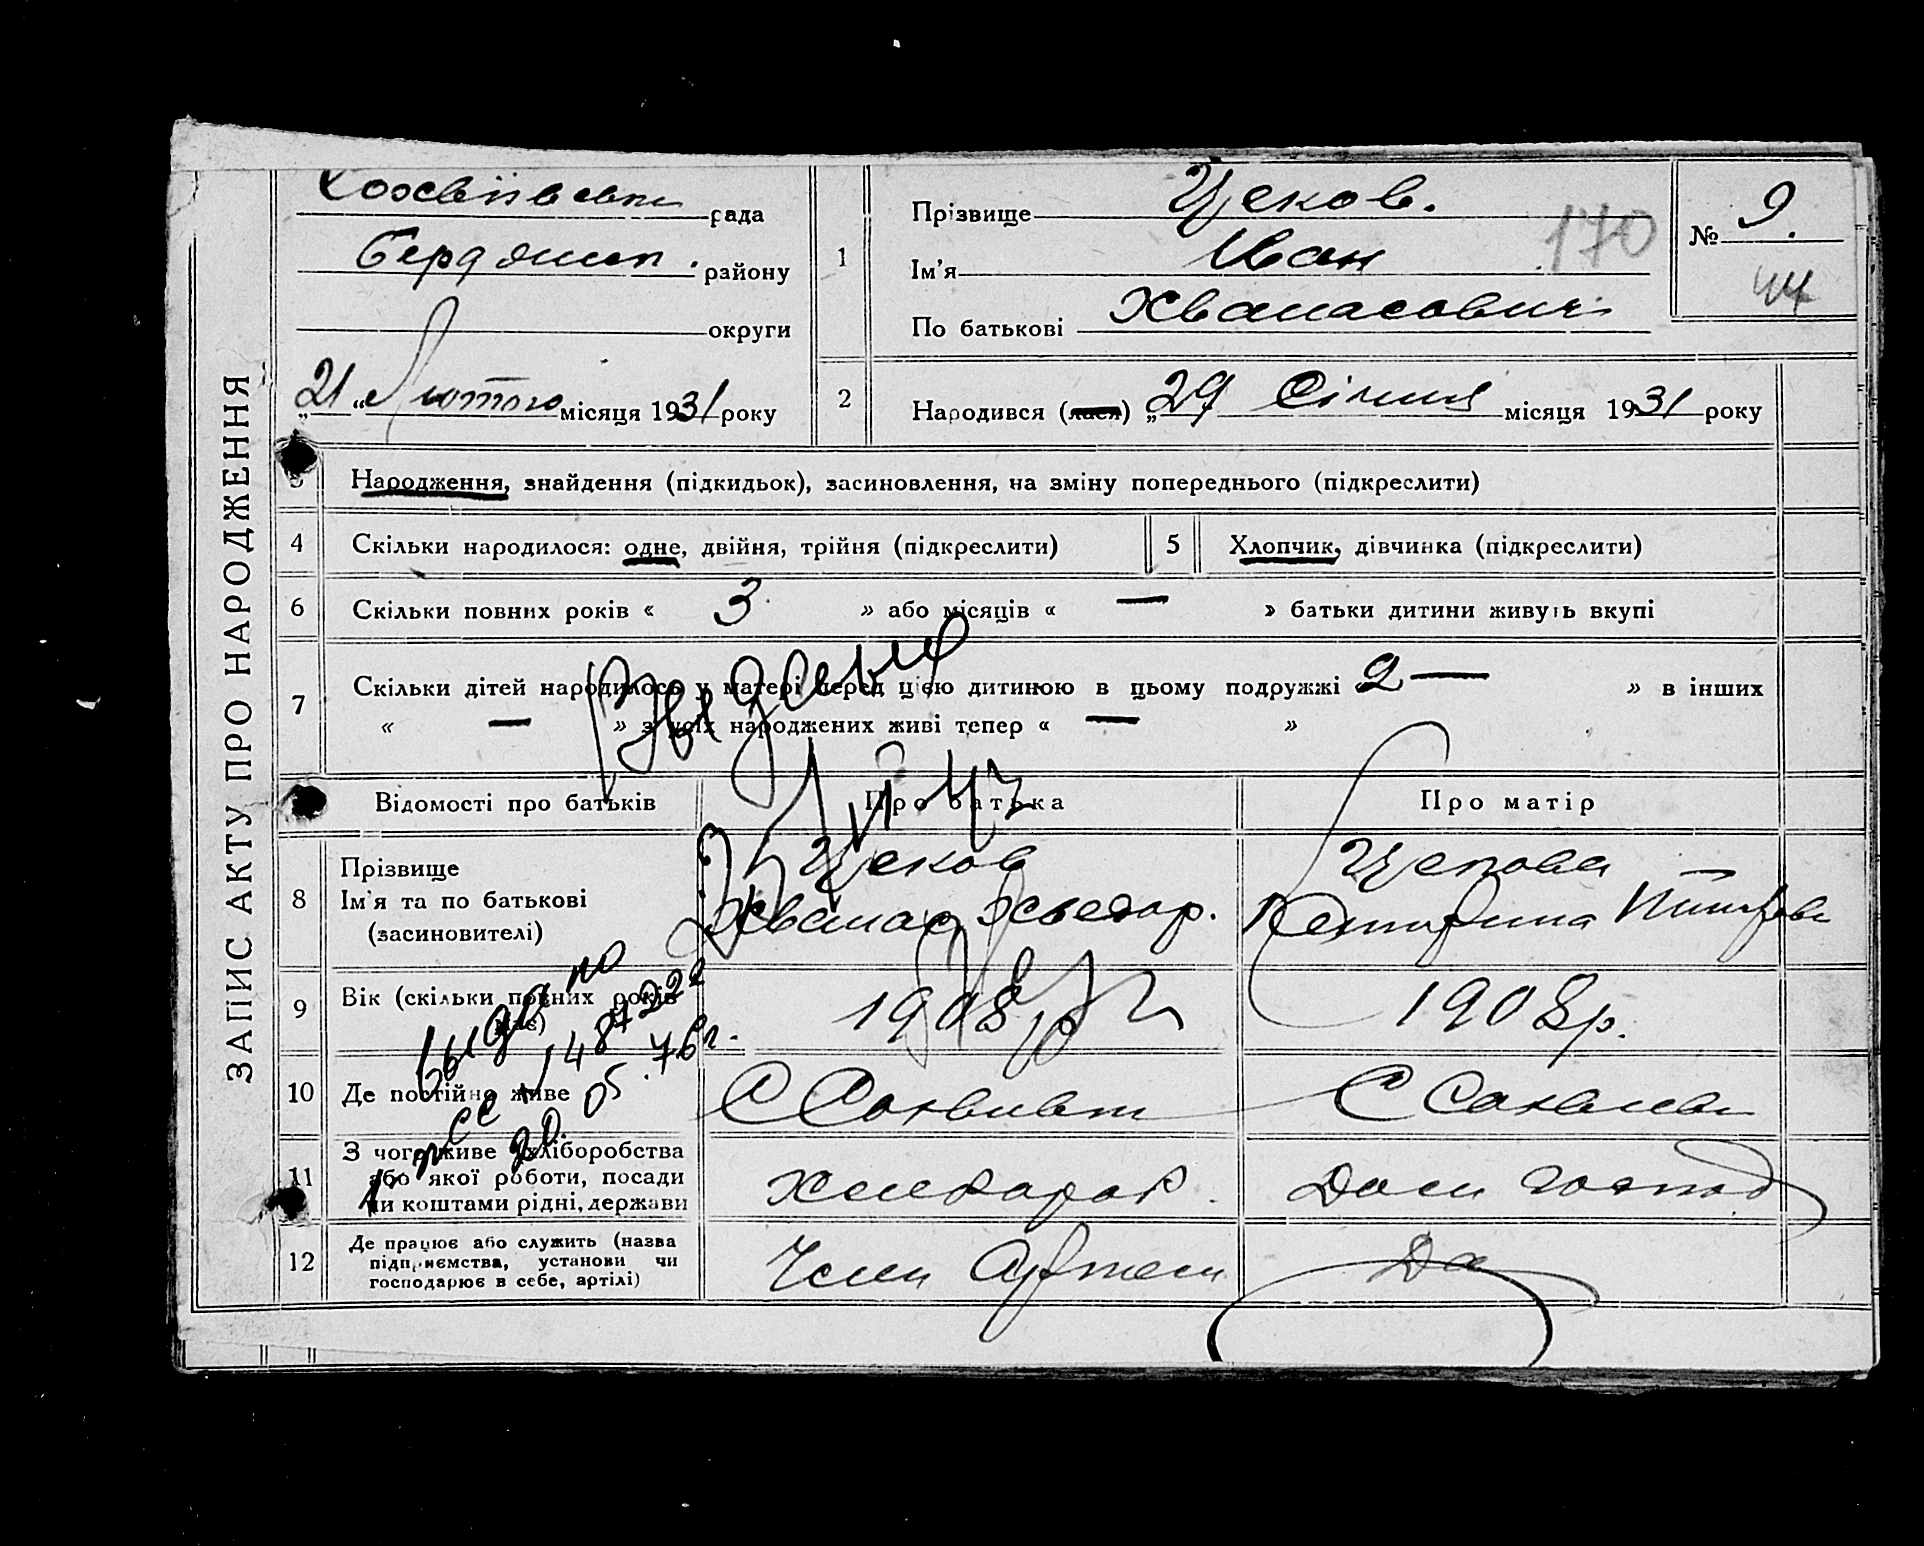 ЗАПИС АКТУ ПРО НАРОДЖЕННЯ
рада
Бердянск. району
округи
„21“ Лютого місяця 1931 року
1
Прізвище Цеков.
Ім'я Иван
По батькові Хванасович
170
№ 9.
44
2 Народився (лася) „29 Січня місяця 1931 року
3 Народження, знайдення (підкидьок), засиновлення, на зміну попереднього (підкреслити)
4 Скільки народилося: одне, двійня, трійня (підкреслити)
5 Хлопчик, дівчинка (підкреслити)
6 Скільки повних років « 3 » або місяців « — » батьки дитини живуть вкупі
7 Скільки дітей народилось у матері перед цією дитиною в цьому подружжі 2 — » в інших
« — » з усіх народжених живі тепер « — »
Відомості про батьків Про батька Про матір
8 Прізвище
Ім'я та по батькові
(засиновителі)
Цеков
Хванас Хведор.
Цекова
9 Вік (скільки повних років має)
1908 р
1908 р.
10 Де постійно живе
11 З чого живе хліборобства
або якої роботи, посади
чи коштами рідні, держави
Хлебороб.
Дом господ
12 Де працює або служить (назва
підприємства, установи чи
господарює в себе, артілі)
Член Артели
Да
Выдано
выдано по
05.76г.